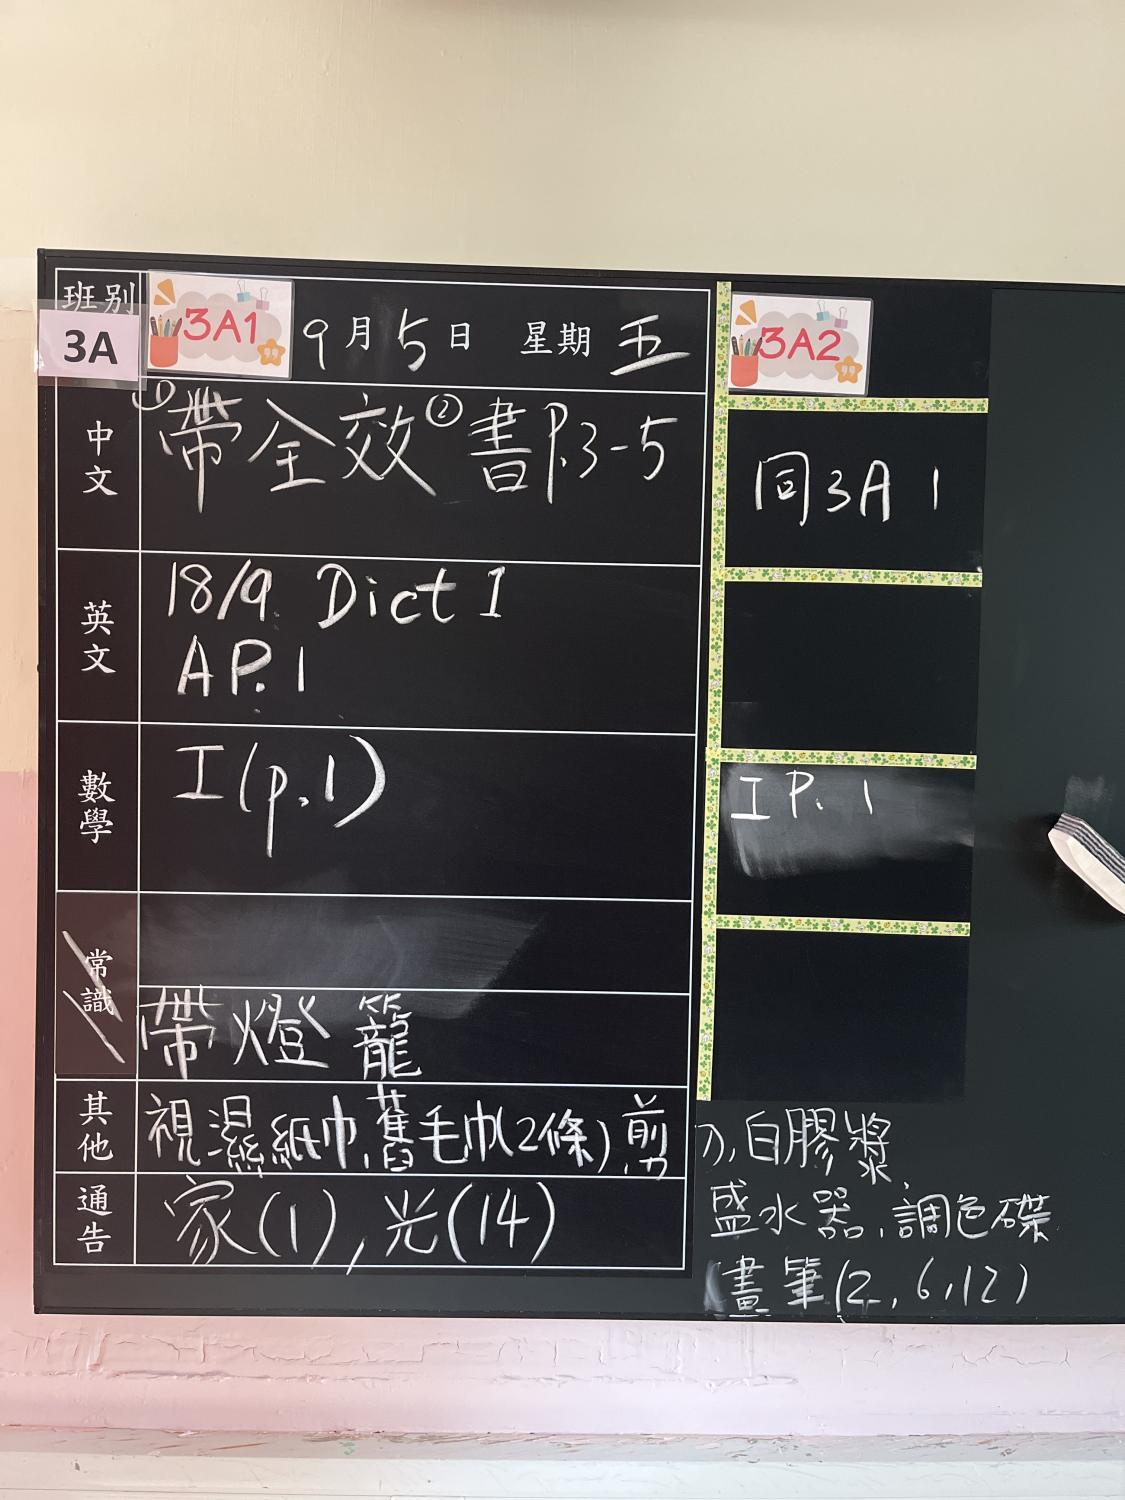 班別
3A
3A1
9月5日 星期五
3A2
中文
①帶全效②書P.3-5
同3A1
英文
18/9 Dict 1
A P.1
數學
I(p.1)
I P.1
常識
帶燈籠
其他
視濕紙巾,舊毛巾(2條),剪刀,白膠漿,
盛水器,調色碟
畫筆(2,6,12)
通告
家(1),光(14)